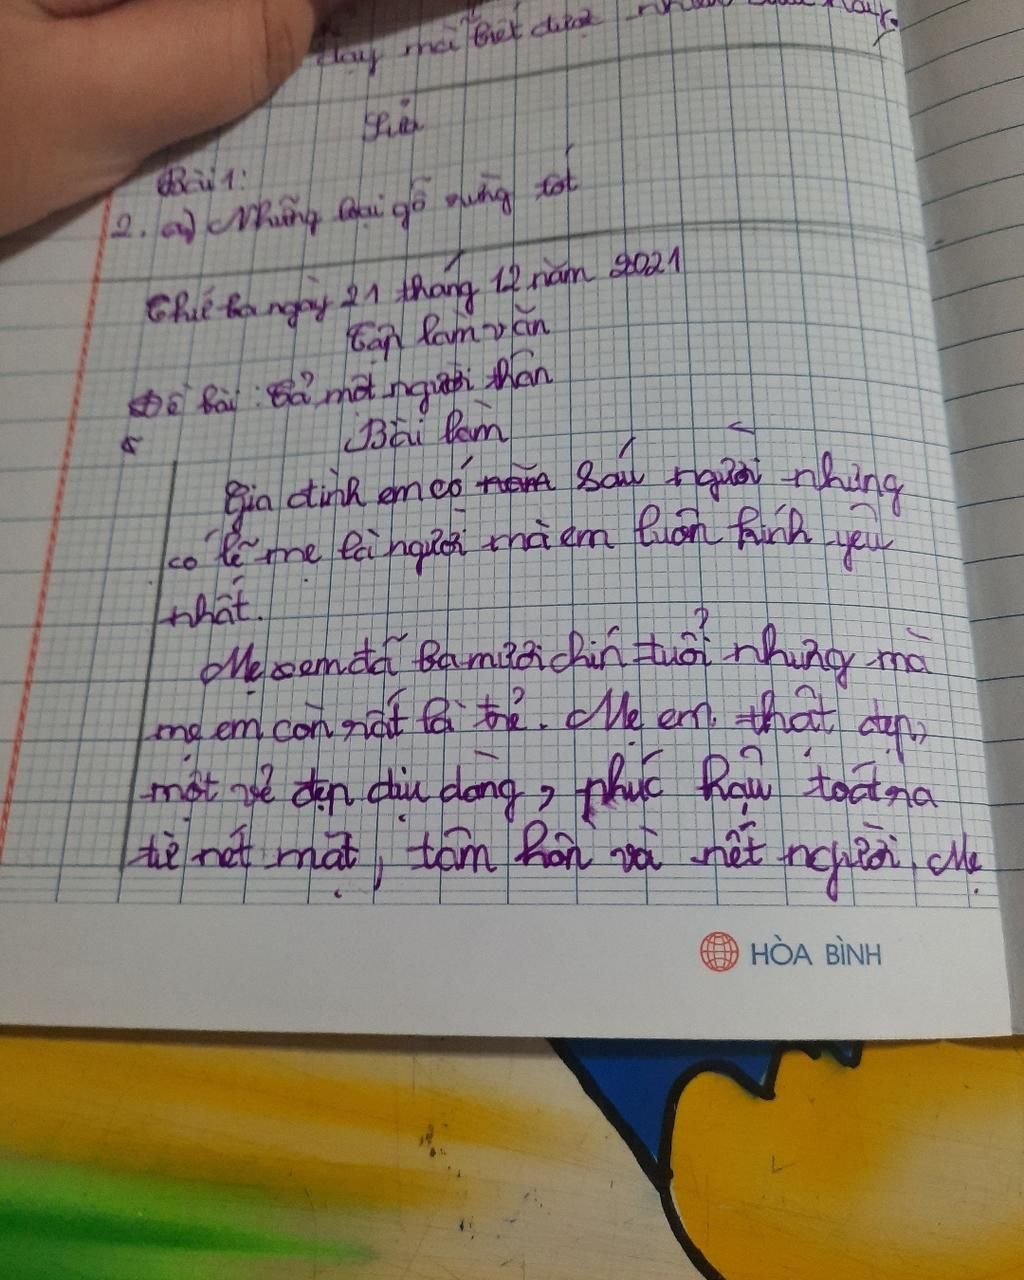 dạy mới biết được
Sửa
Bài 1:
2. a) Những loại gỗ rừng tốt
Thứ ba ngày 21 tháng 12 năm 2021
Tập làm văn
Đề bài: Tả một người thân
Bài làm
Gia đình em có năm sáu người nhưng
có lẽ mẹ là người mà em luôn kính yêu
nhất.
Mẹ em đã ba mươi chín tuổi nhưng mà
mẹ em còn rất là trẻ. Mẹ em thật đẹp,
một vẻ đẹp dịu dàng, phúc hậu toát ra
từ nét mặt, tâm hồn và nết người. Mẹ
HÒA BÌNH